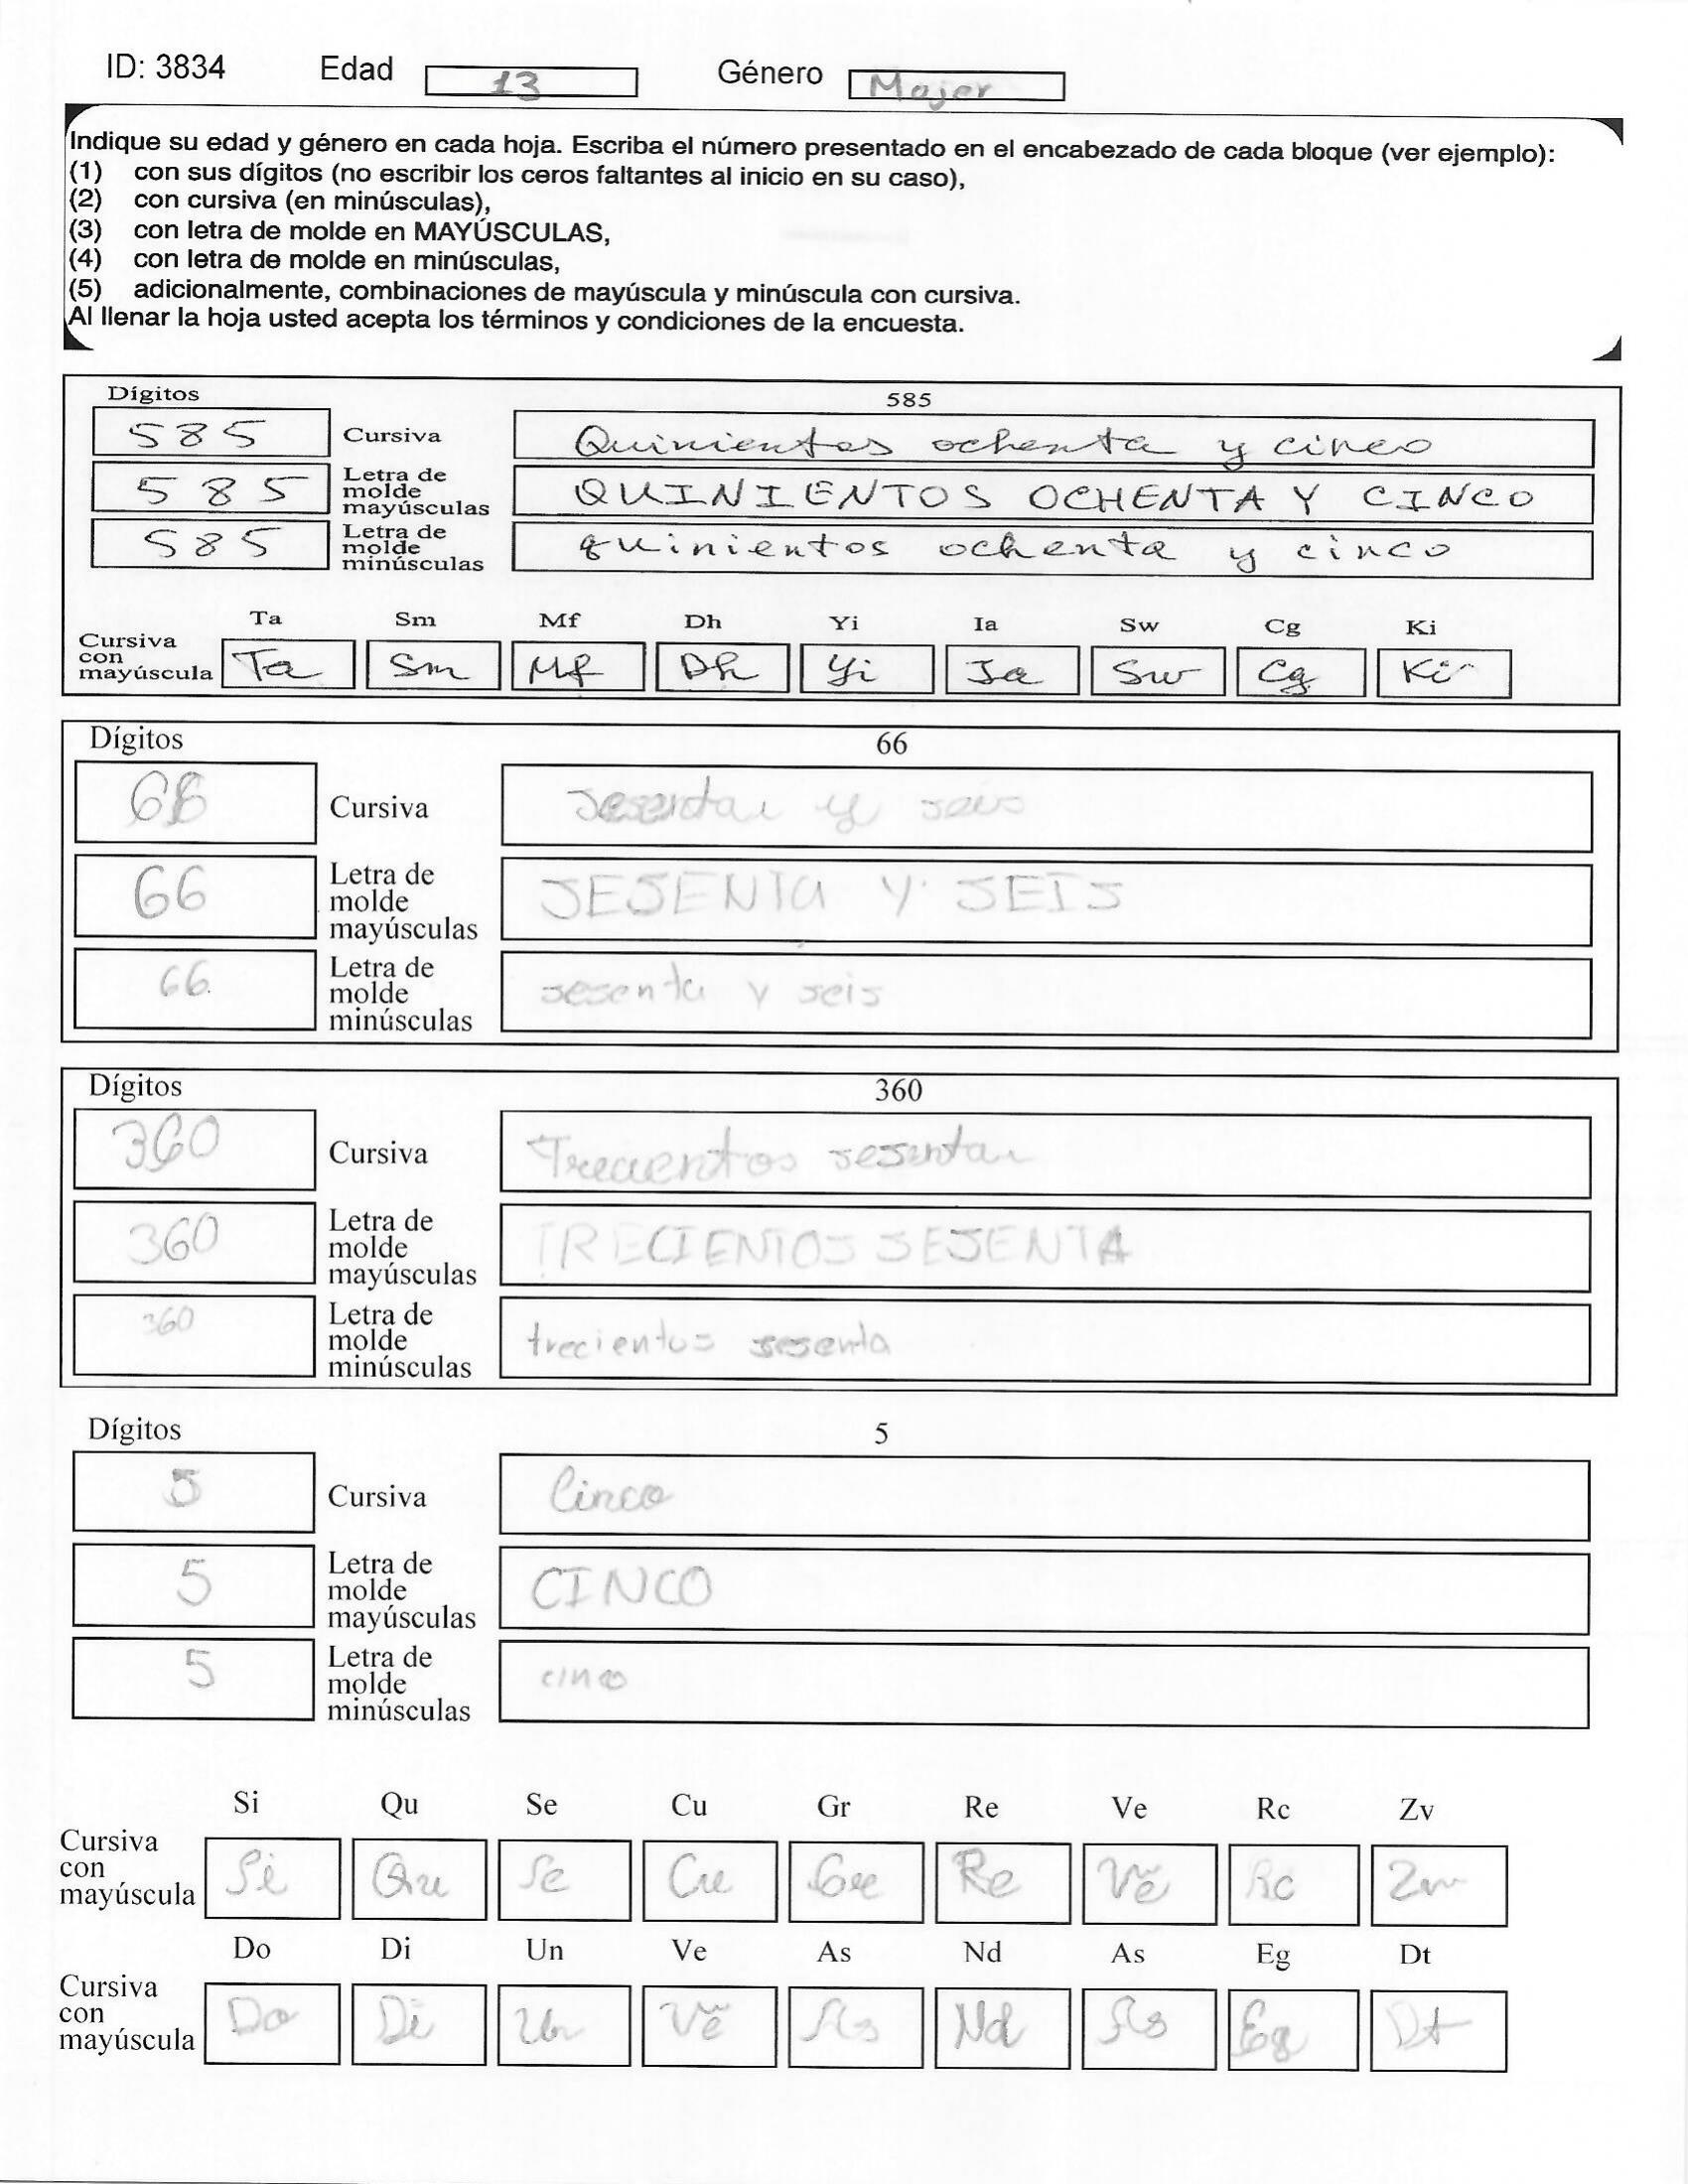 ID: 3834 Edad 13 Género Mujer
Indique su edad y género en cada hoja. Escriba el número presentado en el encabezado de cada bloque (ver ejemplo):
(1) con sus dígitos (no escribir los ceros faltantes al inicio en su caso),
(2) con cursiva (en minúsculas),
(3) con letra de molde en MAYÚSCULAS,
(4) con letra de molde en minúsculas,
(5) adicionalmente, combinaciones de mayúscula y minúscula con cursiva.
Al llenar la hoja usted acepta los términos y condiciones de la encuesta.
Dígitos 585
585 Cursiva Quinientos ochenta y cinco
585 Letra de molde mayúsculas QUINIENTOS OCHENTA Y CINCO
585 Letra de molde minúsculas quinientos ochenta y cinco
Ta Sm Mf Dh Yi Ia Sw Cg Ki
Cursiva con mayúscula Ta Sm Mf Dh Yi Ia Sw Cg Ki
Dígitos 66
66 Cursiva sesenta y seis
66 Letra de molde mayúsculas SESENTA Y SEIS
66 Letra de molde minúsculas sesenta y seis
Dígitos 360
360 Cursiva Trecientos sesenta
360 Letra de molde mayúsculas TRECIENTOS SESENTA
360 Letra de molde minúsculas trecientos sesenta
Dígitos 5
5 Cursiva Cinco
5 Letra de molde mayúsculas CINCO
5 Letra de molde minúsculas cinco
Si Qu Se Cu Gr Re Ve Rc Zv
Cursiva con mayúscula Si Qu Se Cu Gr Re Ve Rc Zv
Do Di Un Ve As Nd As Eg Dt
Cursiva con mayúscula Do Di Un Ve As Nd As Eg Dt